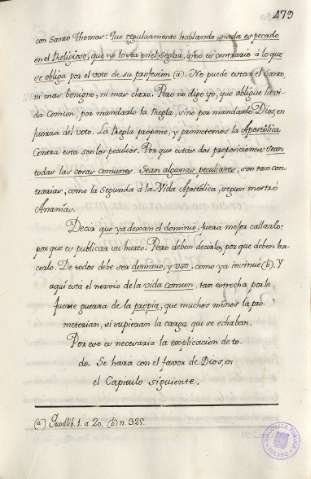 479
con Santo Thomas: Que regularmente hablando, nada es pecado
en el Religioso, que no lo sea en el Seglar, sino es contrario à lo que
se obliga por el voto de su profesion (a). No puede estar el Santo,
ni mas benigno, ni mas claro. Pues no digo yo, que obligue la vi-
da Comun, por mandarlo la Regla, sino por mandarlo Dios, en
fuerza del voto. La Regla propone, y prometemos la Apostólica.
Contra esta son las peculios. Por que estas dos proposiciones: Sean
todas las cosas comunes: Sean algunas peculiares, son tan con-
trarias, como la Segunda à la Vida Apostólica, segun mostró
Ananías.
Decir que ya dexan el dominio, fuera mejor callarlo:
por que es publicar un hurto. Pero deben decirlo, por que deben ha-
cerlo. De todos debe ser dominio, y uso, como ya insinué (b). Y
aqui está el nervio de la vida comun, tan estrecha por la
fuerte guerra de la propia, que muchos menos la pro-
meterían, si supieran la carga que se echaban.
Por eso es necesaria la explicacion de to-
do. Se hará con el favor de Dios, en
el Capitulo siguiente.
(a) Quodlib. 1. a 20. (b) n. 325.